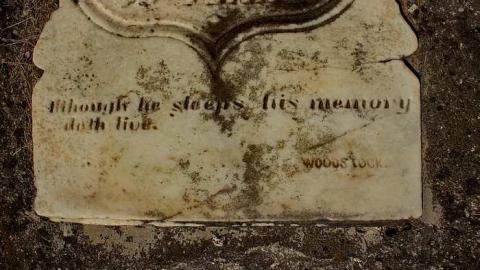 Although he sleeps, his memory
doth live.
WOODSTOCK.